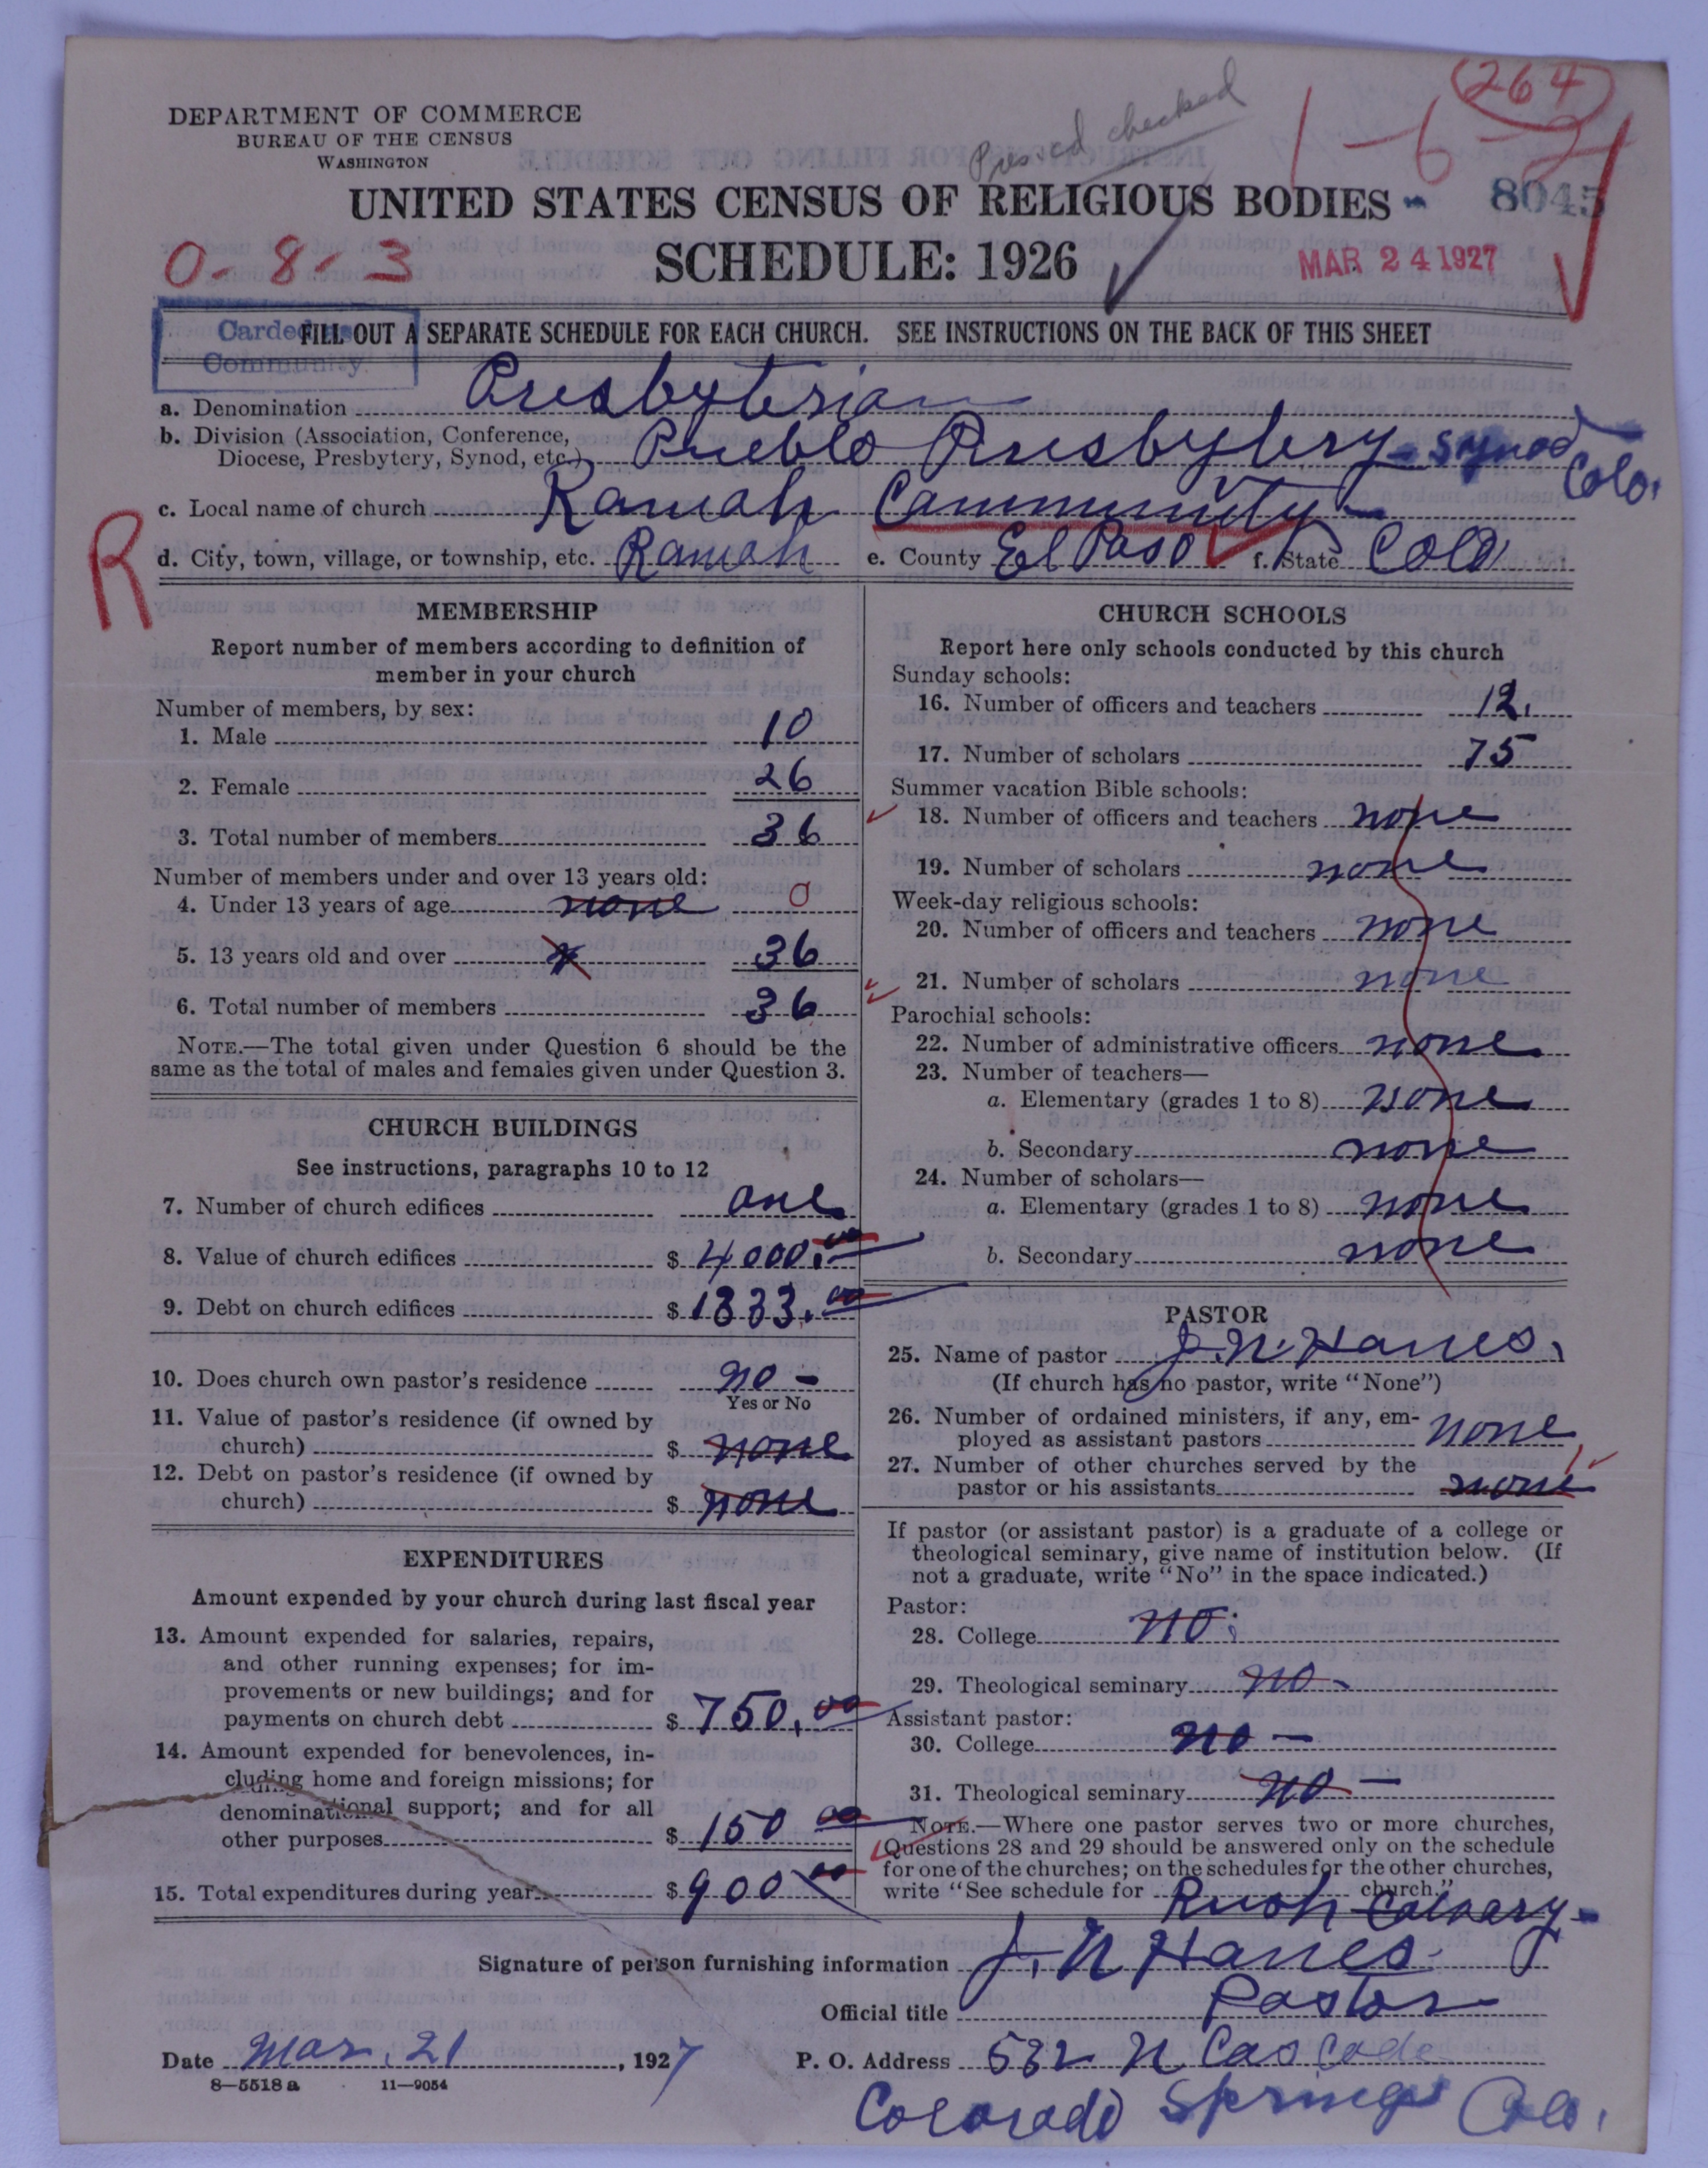 264
DEPARTMENT OF COMMERCE
BUREAU OF THE CENSUS
WASHINGTON
checked
1-6-2
UNITED STATES CENSUS OF RELIGIOUS BODIES
8045
SCHEDULE: 1926
0-8-3
MAR 24 1927
Carded as
Community
FILL OUT A SEPARATE SCHEDULE FOR EACH CHURCH. SEE INSTRUCTIONS ON THE BACK OF THIS SHEET
a. Denomination Presbyterian
b. Division (Association, Conference, Diocese, Presbytery, Synod, etc.) Pueblo Presbytery - Synod Colo.
c. Local name of church Ramah Community -
R
d. City, town, village, or township, etc. Ramah e. County El Paso f. State Colo
MEMBERSHIP
Report number of members according to definition of
member in your church
Number of members, by sex:
1. Male 10
2. Female 26
3. Total number of members 36
Number of members under and over 13 years old:
4. Under 13 years of age none 0
5. 13 years old and over 36
6. Total number of members 36
NOTE.—The total given under Question 6 should be the
same as the total of males and females given under Question 3.
CHURCH BUILDINGS
See instructions, paragraphs 10 to 12
7. Number of church edifices one
8. Value of church edifices $ 4000.00
9. Debt on church edifices $ 1333.00
10. Does church own pastor's residence no -
Yes or No
11. Value of pastor's residence (if owned by
church) $ none
12. Debt on pastor's residence (if owned by
church) $ none
EXPENDITURES
Amount expended by your church during last fiscal year
13. Amount expended for salaries, repairs,
and other running expenses; for im-
provements or new buildings; and for
payments on church debt $ 750.00
14. Amount expended for benevolences, in-
cluding home and foreign missions; for
denominational support; and for all
other purposes $ 150 00
15. Total expenditures during year $ 900 00
CHURCH SCHOOLS
Report here only schools conducted by this church
Sunday schools:
16. Number of officers and teachers 12.
17. Number of scholars 75
Summer vacation Bible schools:
18. Number of officers and teachers none
19. Number of scholars none
Week-day religious schools:
20. Number of officers and teachers none
21. Number of scholars none
Parochial schools:
22. Number of administrative officers none
23. Number of teachers—
a. Elementary (grades 1 to 8) none
b. Secondary none
24. Number of scholars—
a. Elementary (grades 1 to 8) none
b. Secondary none
PASTOR
25. Name of pastor J. N. Hanes.
(If church has no pastor, write "None")
26. Number of ordained ministers, if any, em-
ployed as assistant pastors none
27. Number of other churches served by the
pastor or his assistants none 1
If pastor (or assistant pastor) is a graduate of a college or
theological seminary, give name of institution below. (If
not a graduate, write "No" in the space indicated.)
Pastor:
28. College no.
29. Theological seminary no -
Assistant pastor:
30. College no -
31. Theological seminary no -
NOTE.—Where one pastor serves two or more churches,
Questions 28 and 29 should be answered only on the schedule
for one of the churches; on the schedules for the other churches,
write "See schedule for Rush Calvary - church."
Signature of person furnishing information J. N Hanes.
Official title Pastor
Date Mar. 21, 1927
P. O. Address 532 N Cascade
8—5518 a 11—9054
Colorado Springs Colo.